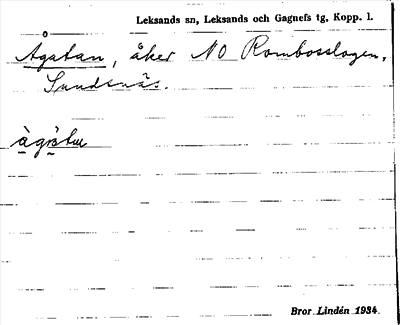 Leksands sn, Leksands och Gagnefs tg, Kopp. l.
Ågatan, åker NO Rombosslogen,
Sundsnäs.
Bror Lindén 1934.